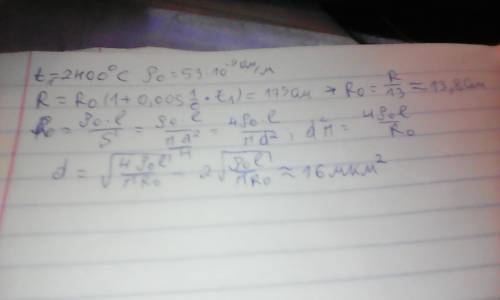 t₁=2400°C ρ₀=53·10⁻⁹ Ом/м
R=R₀(1+0,005 1/c · t₁)=173 Ом → R₀=R/13≈13,8 Ом
R₀=ρ₀·l/S=ρ₀·l/(πd²/4)=4ρ₀·l/πd², d²π=4ρ₀l/R₀
d=√(4ρ₀l/πR₀) = 2√(ρ₀l/πR₀) ≈ 16 мкм²